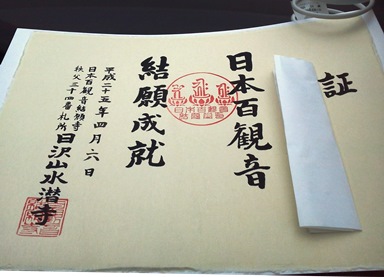 証
日本百観音
結願成就
平成二十五年四月六日
日本百観音結願寺
秩父三十四番札所
日沢山水潜寺